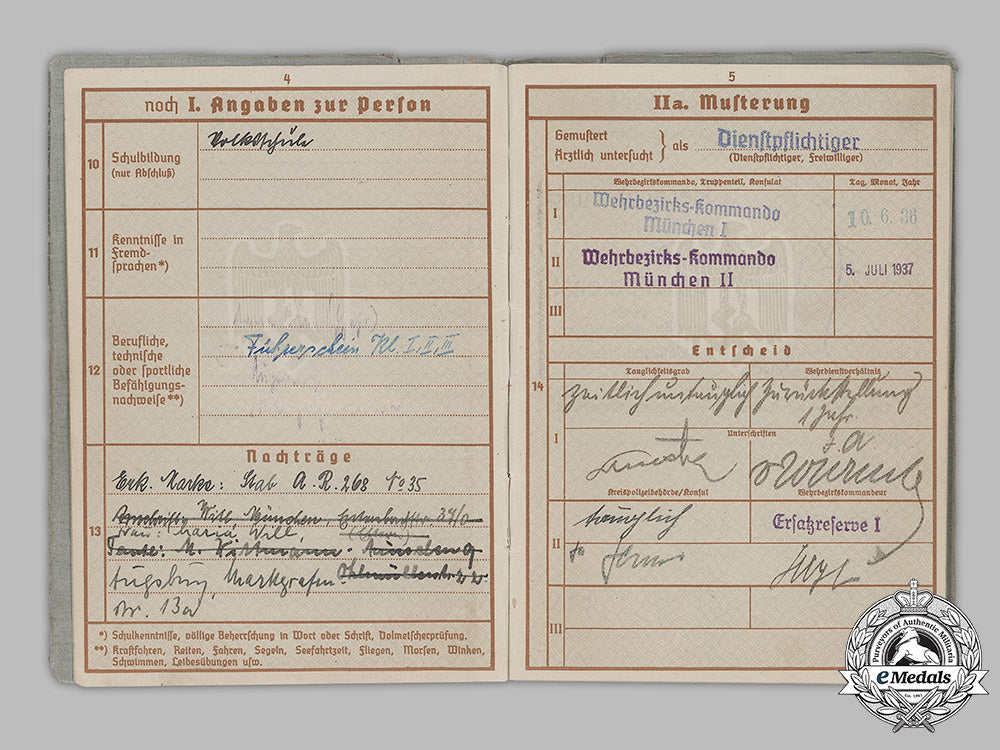 4
noch I. Angaben zur Person
10
Schulbildung
(nur Abschluß)
Volksschule
11
Kenntnisse in
Fremd-
sprachen*)
12
Berufliche,
technische
oder sportliche
Befähigungs-
nachweise**)
Führerschein Kl. I, II, III
Nachträge
13
Erk. Marke: Stab A.R. 268 No 35
Anschrift: Will, München,
Frau: Maria Will,
Tante: M. Wittmann
Augsburg, Markgrafen
Str. 13a
*) Schulkenntnisse, völlige Beherrschung in Wort oder Schrift, Dolmetscherprüfung.
**) Kraftfahren, Reiten, Fahren, Segeln, Seefahrtzeit, Fliegen, Morsen, Winken,
Schwimmen, Leibesübungen usw.
5
IIa. Musterung
Gemustert
Ärztlich untersucht } als Dienstpflichtiger
(Dienstpflichtiger, Freiwilliger)
Wehrbezirkskommando, Truppenteil, Konsulat
Tag, Monat, Jahr
I
Wehrbezirks-Kommando
München I
10. 6. 36
II
Wehrbezirks-Kommando
München II
5. JULI 1937
III
Entscheid
14
Tauglichkeitsgrad
Wehrdienstverhältnis
zeitlich untauglich
Zurückstellung
1 Jahr
I
Unterschriften
J.A.
Kreispolizeibehörde/Konsul
Wehrbezirkskommandeur
II
tauglich
Ersatzreserve I
III
Purveyors of Authentic Militaria
eMedals